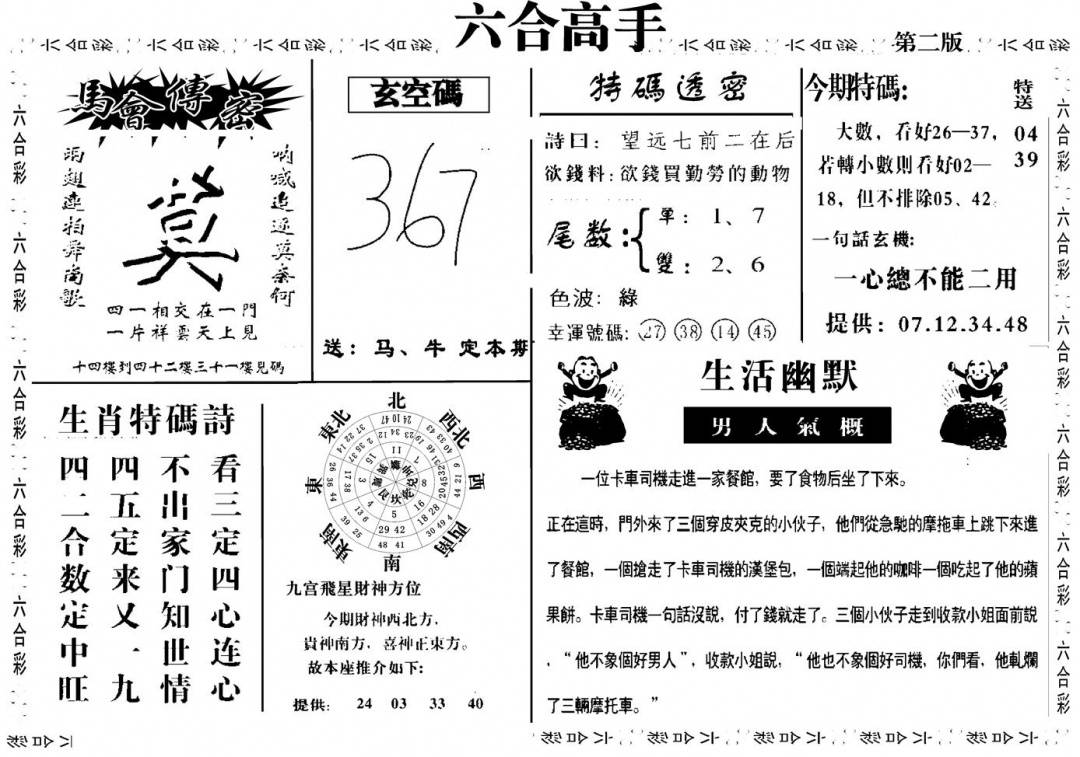 六合高手
第二版
馬會傳密
兩翅連拍舞尚歌
莫
吶喊追逐莫奈何
四一相交在一門
一片祥雲天上見
十四樓到四十二樓三十一樓見碼
玄空碼
367
送：马、牛 定本期
特碼透密
詩曰：望远七前二在后
欲錢料：欲錢買勤勞的動物
尾数：
單：1、7
雙：2、6
色波：綠
幸運號碼：27 38 14 45
今期特碼:
特送
04
39
大數，看好26—37，
若轉小數則看好02—
18，但不排除05、42
一句話玄機:
一心總不能二用
提供：07.12.34.48
生肖特碼詩
看三定四心连心
不出家门知世情
四五定来又一九
四二合数定中旺
北
西北
西
西南
南
東南
東
東北
九宫飛星財神方位
今期財神西北方，
貴神南方，喜神正東方。
故本座推介如下:
提供: 24 03 33 40
生活幽默
男人氣概
一位卡車司機走進一家餐館，要了食物后坐了下來。
正在這時，門外來了三個穿皮夾克的小伙子，他們從急馳的摩拖車上跳下來進
了餐館，一個搶走了卡車司機的漢堡包，一個端起他的咖啡一個吃起了他的蘋
果餅。卡車司機一句話沒說，付了錢就走了。三個小伙子走到收款小姐面前說
，“他不象個好男人”，收款小姐説，“他也不象個好司機，你們看，他軋爛
了三輛摩托車。”
六合彩